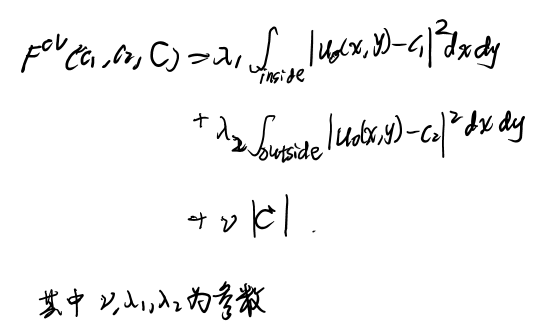 F^{CV}(c₁, c₂, C) = λ₁ ∫_{inside} |u₀(x, y) - c₁|² dx dy
+ λ₂ ∫_{outside} |u₀(x, y) - c₂|² dx dy
+ ν |C| .
其中 ν, λ₁, λ₂ 为参数